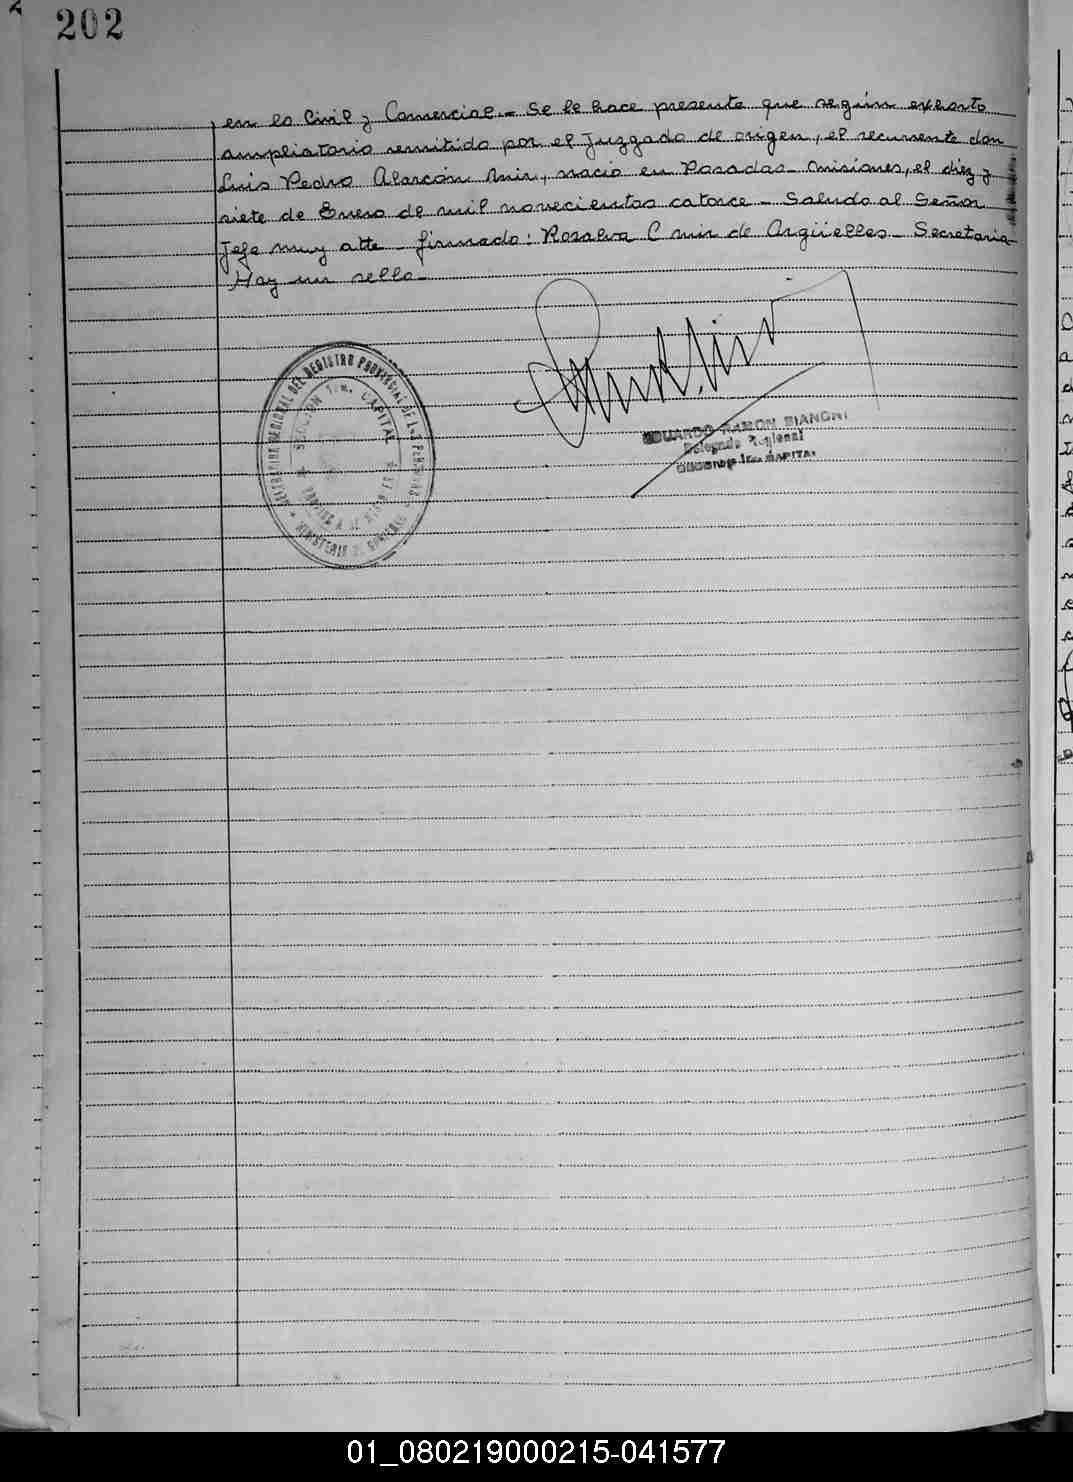 202
en lo Civil y Comercial.- Se le hace presente que según exhorto
ampliatorio remitido por el Juzgado de origen, el recurrente don
Luis Pedro Alarcón Mir, nació en Posadas- Misiones, el diez y
siete de Enero de mil novecientos catorce - Saludo al Señor
Jefe muy atte - firmado: Rosalva C Mir de Argüelles - Secretaria-
Hay un sello-
DELEGACION REGIONAL DEL REGISTRO PROVINCIAL DE LAS PERSONAS
SECCION 1era. CAPITAL
MINISTERIO DE GOBIERNO
EDUARDO RAMON BIANCHI
Delegado Regional
SECCION 1era. CAPITAL
01_080219000215-041577